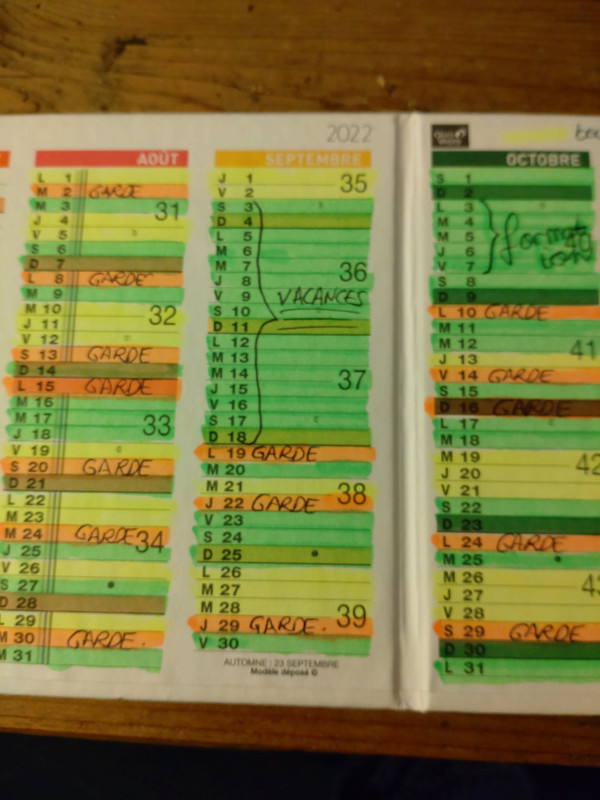 2022
AOÛT
L 1
M 2 GARDE
M 3
J 4 31
V 5
S 6
D 7
L 8 GARDE
M 9
M 10
J 11 32
V 12
S 13 GARDE
D 14
L 15 GARDE
M 16
M 17
J 18 33
V 19
S 20 GARDE
D 21
L 22
M 23
M 24 GARDE 34
J 25
V 26
S 27
D 28
L 29
M 30 GARDE.
M 31
SEPTEMBRE
J 1 35
V 2
S 3
D 4
L 5
M 6
M 7 36
J 8
V 9 VACANCES
S 10
D 11
L 12
M 13
M 14 37
J 15
V 16
S 17
D 18
L 19 GARDE
M 20
M 21
J 22 GARDE 38
V 23
S 24
D 25
L 26
M 27
M 28
J 29 GARDE. 39
V 30
AUTOMNE : 23 SEPTEMBRE
Modèle déposé ©
OCTOBRE
S 1
D 2
L 3
M 4
M 5 40
J 6
V 7
S 8
D 9
L 10 GARDE
M 11
M 12 41
J 13
V 14 GARDE
S 15
D 16 GARDE
L 17
M 18
M 19 42
J 20
V 21
S 22
D 23
L 24 GARDE
M 25
M 26
J 27
V 28
S 29 GARDE
D 30
L 31